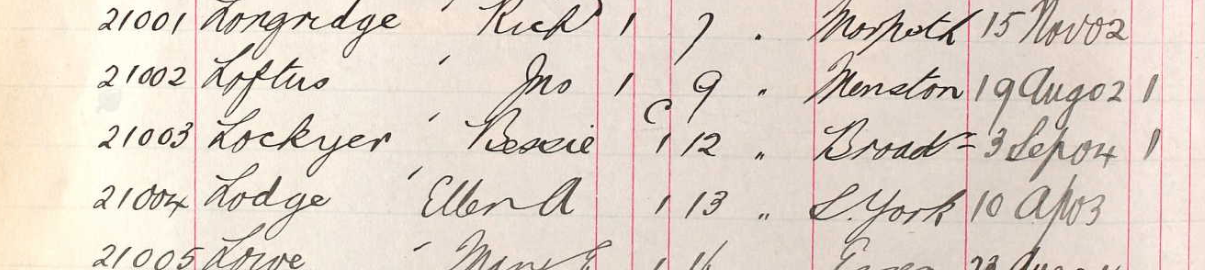 21001 Longridge Rich^d 1 7 . Morpeth 15 Nov 02
21002 Loftus ' Jno 1 9 " Menston 19 Aug 02 1
21003 Lockyer ' Bessie C 1 12 " Broad= 3 Sep 04 1
21004 Lodge ' Ellen A 1 13 " S. York 10 Ap 03
21005 Lowe ' Mary E 1